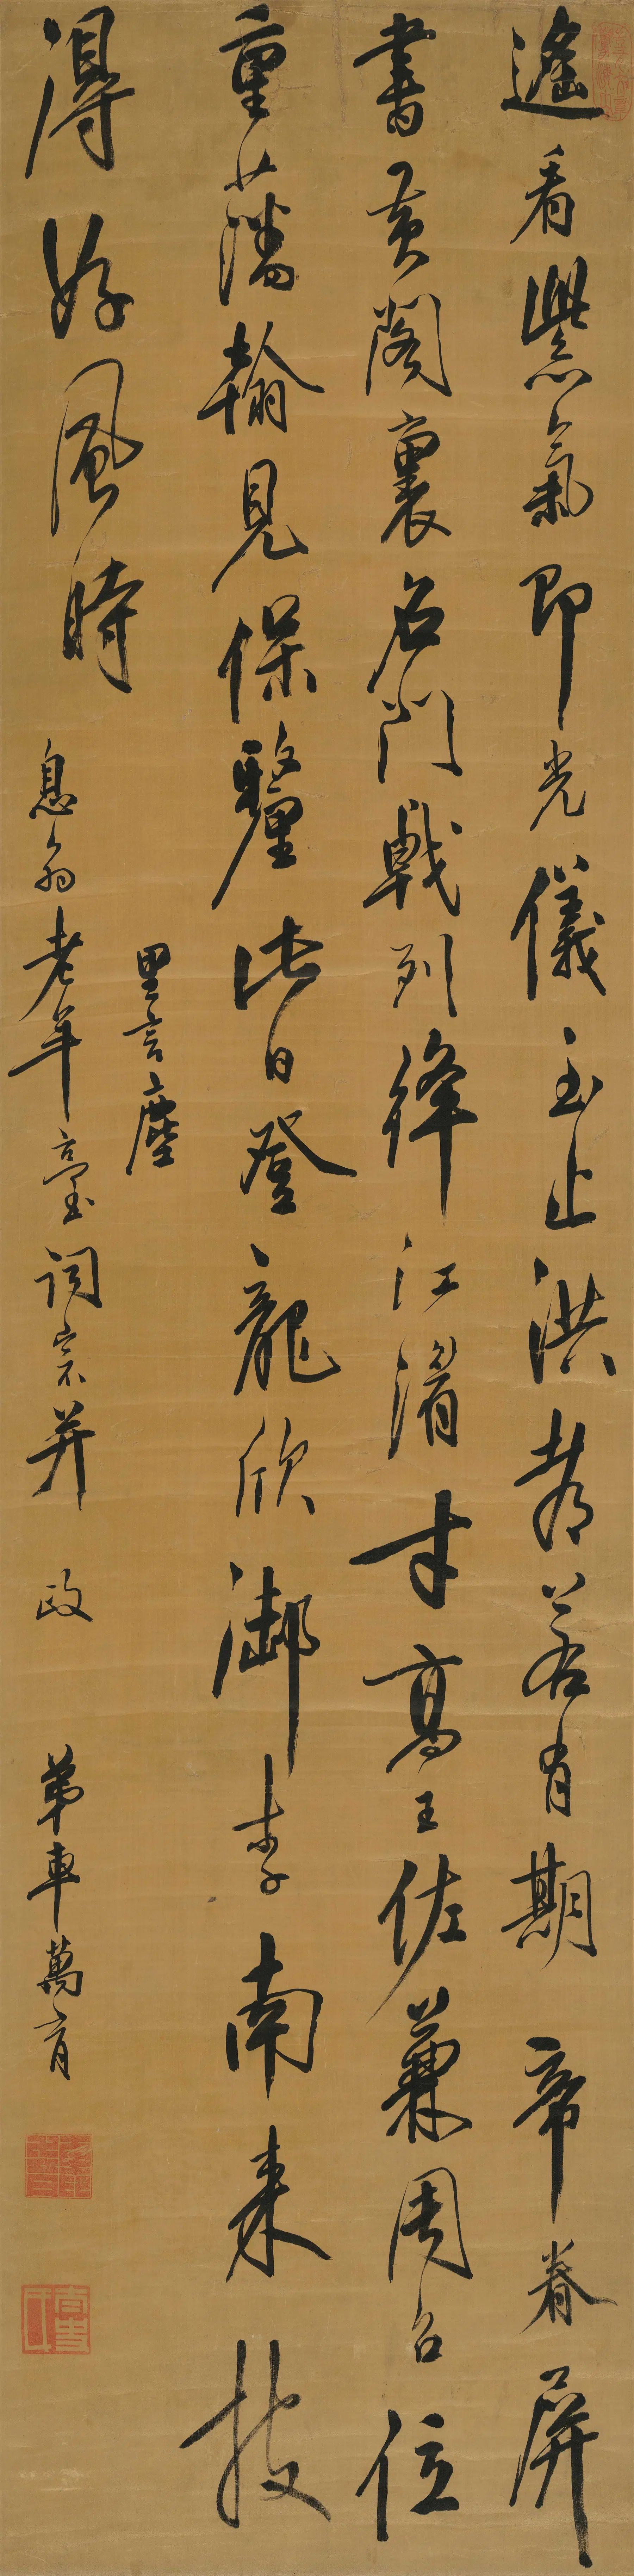 遙看紫氣即光儀玉止洪都若有期帝眷屏
書黃閣裏名門戟列絳江湄才高王佐兼周召位
重藩翰見保釐此日登龍欣御李南來披
得好風時
里言塵
息翁老年臺詞宗并政
弟車萬育